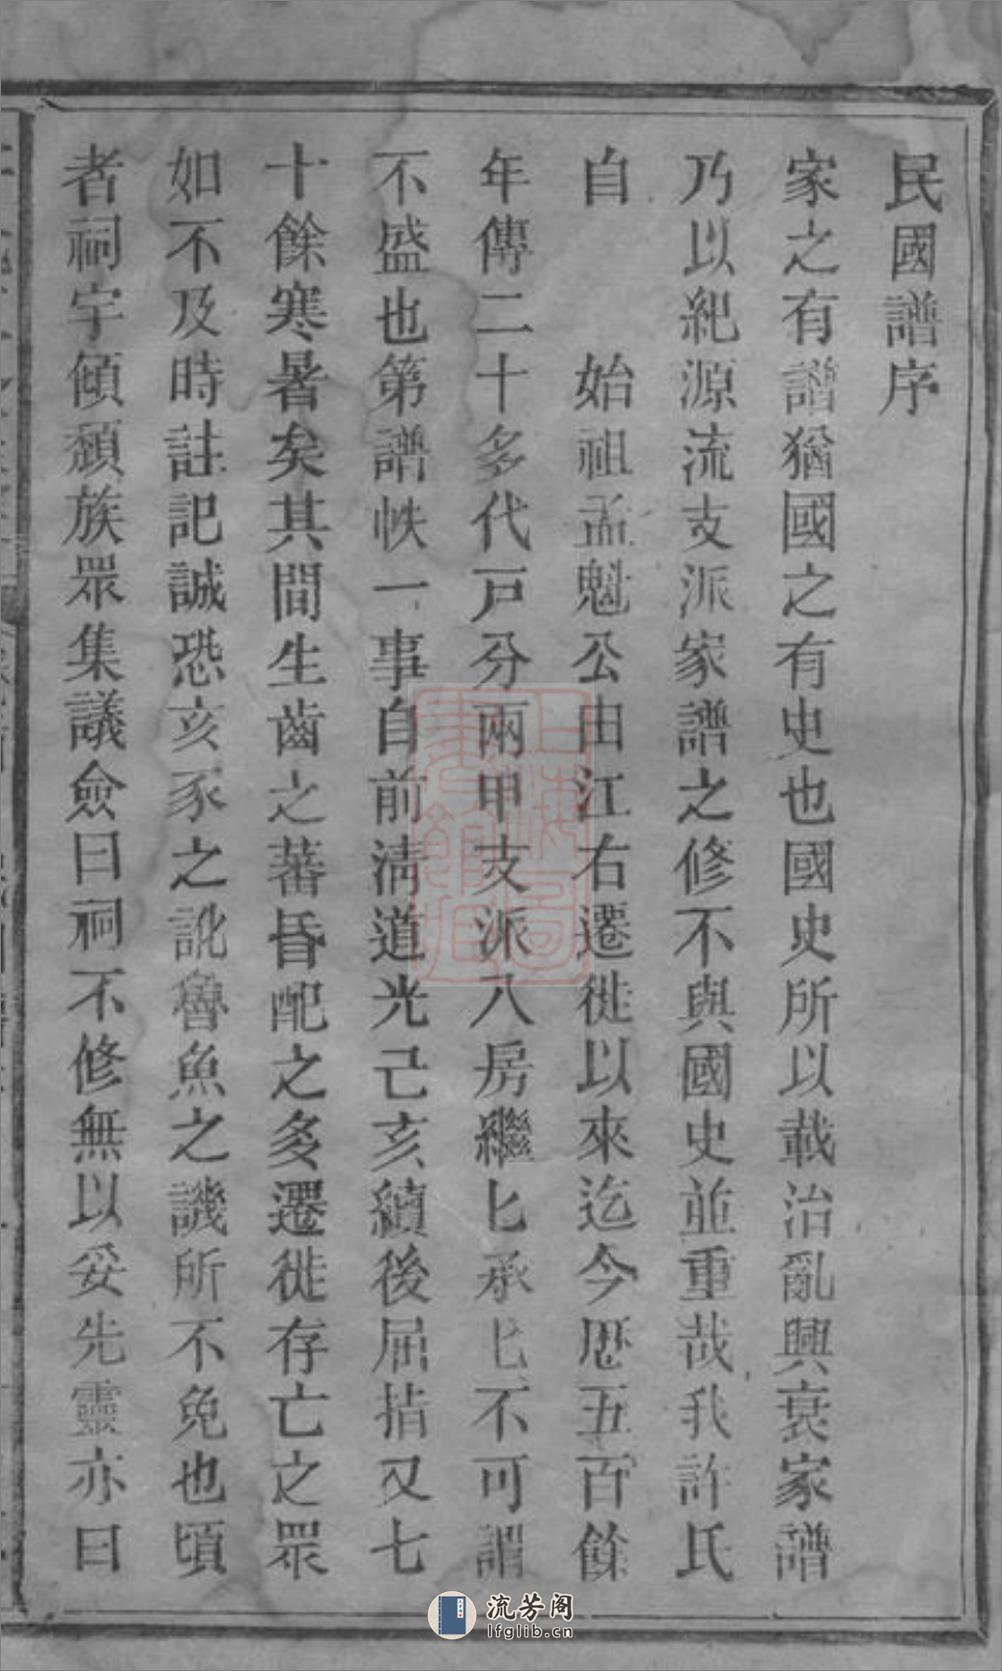 民國譜序
家之有譜猶國之有史也國史所以載治亂興衰家譜
乃以紀源流支派家譜之修不與國史並重哉我許氏
自　　始祖孟魁公由江右遷徙以來迄今歷五百餘
年傳二十多代戸分兩甲支派八房繼匕承匕不可謂
不盛也第譜帙一事自前清道光己亥續後屈指又七
十餘寒暑矣其間生齒之蕃昏配之多遷徙存亡之眾
如不及時註記誠恐亥豕之訛魯魚之譏所不免也頃
者祠宇傾頹族眾集議僉曰祠不修無以妥先靈亦曰
上海圖書館藏
流芳阁
lfglib.cn